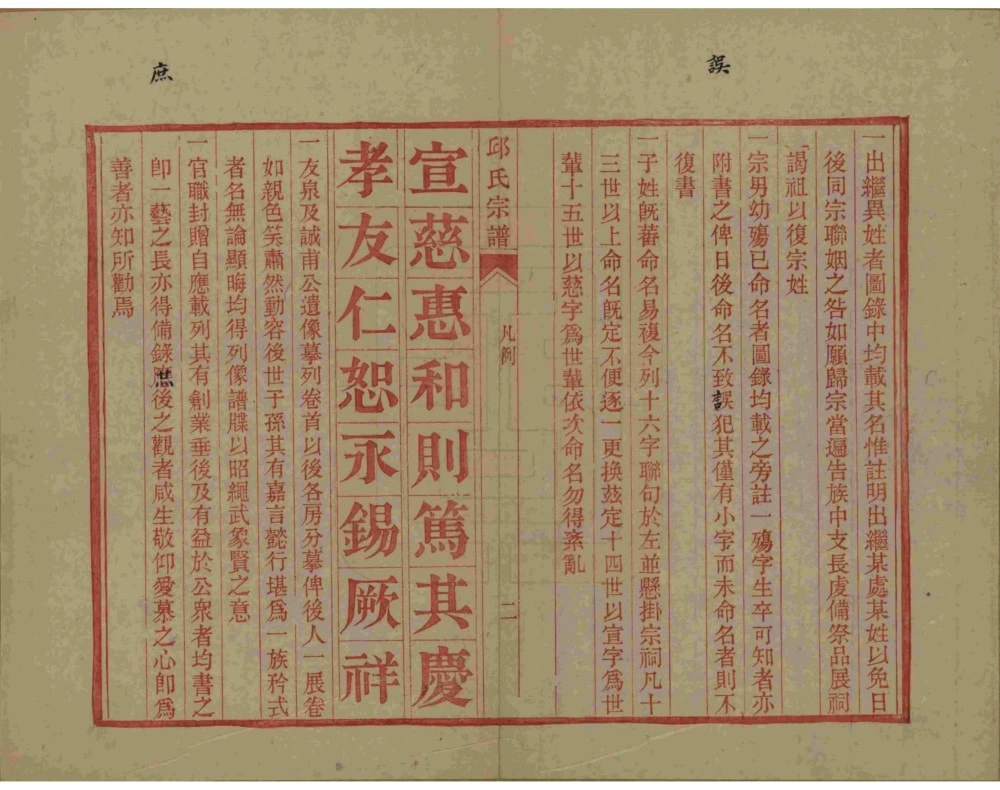 誤
一出繼異姓者圖錄中均載其名惟註明出繼某處某姓以免日
後同宗聯姻之咎如願歸宗當遍告族中支長虔備祭品展祠
謁祖以復宗姓
一宗男幼殤已命名者圖錄均載之旁註一殤字生卒可知者亦
附書之俾日後命名不致誤犯其僅有小字而未命名者則不
復書
一子姓旣蕃命名易複今列十六字聯句於左並懸掛宗祠凡十
三世以上命名旣定不便逐一更換茲定十四世以宣字爲世
輩十五世以慈字爲世輩依次命名勿得紊亂
邱氏宗譜
凡例
二
宣慈惠和則篤其慶
孝友仁恕永錫厥祥
一友泉及誠甫公遺像摹列卷首以後各房分摹俾後人一展卷
如親色笑肅然動容後世子孫其有嘉言懿行堪爲一族矜式
者名無論顯晦均得列像譜牒以昭繩武象賢之意
一官職封贈自應載列其有創業垂後及有益於公衆者均書之
卽一藝之長亦得備錄庶後之觀者咸生敬仰愛慕之心卽爲
善者亦知所勸焉
庶